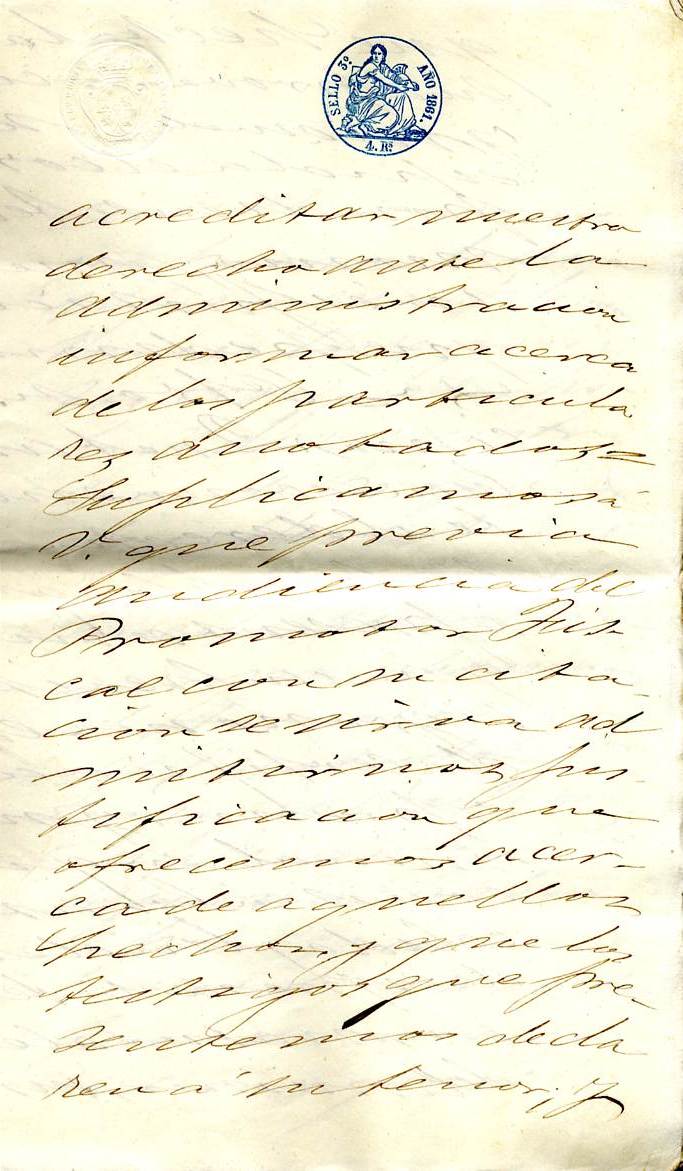 SELLO 3º AÑO 1861.
4. Rs.
acreditar nuestro
derecho ante la
administracion
informar acerca
de los particula
res anotados=
Suplicamos á
V. que previa
audiencia del
Promotor Fis-
cal con su cita-
cion se sirva ad
mitirnos jus-
tificacion que
ofrecemos acer-
ca de aquellos
hechos, y que los
testigos que pre-
sentemos decla
ren á su tenor; y